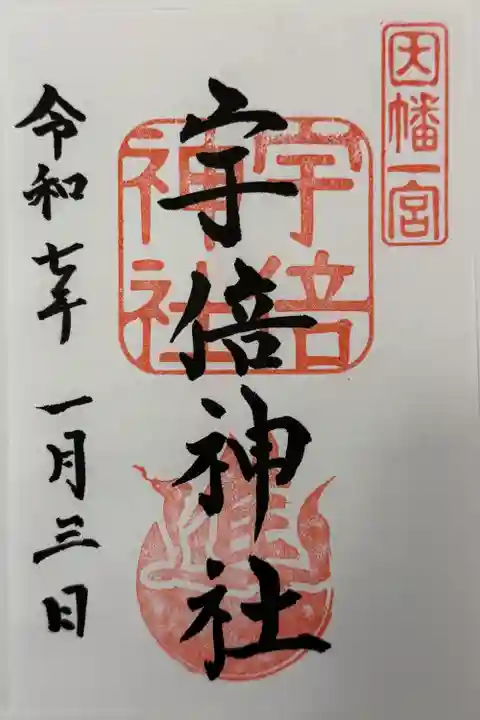 因幡一宮
宇倍神社
宇倍神社
令和七年 一月三日